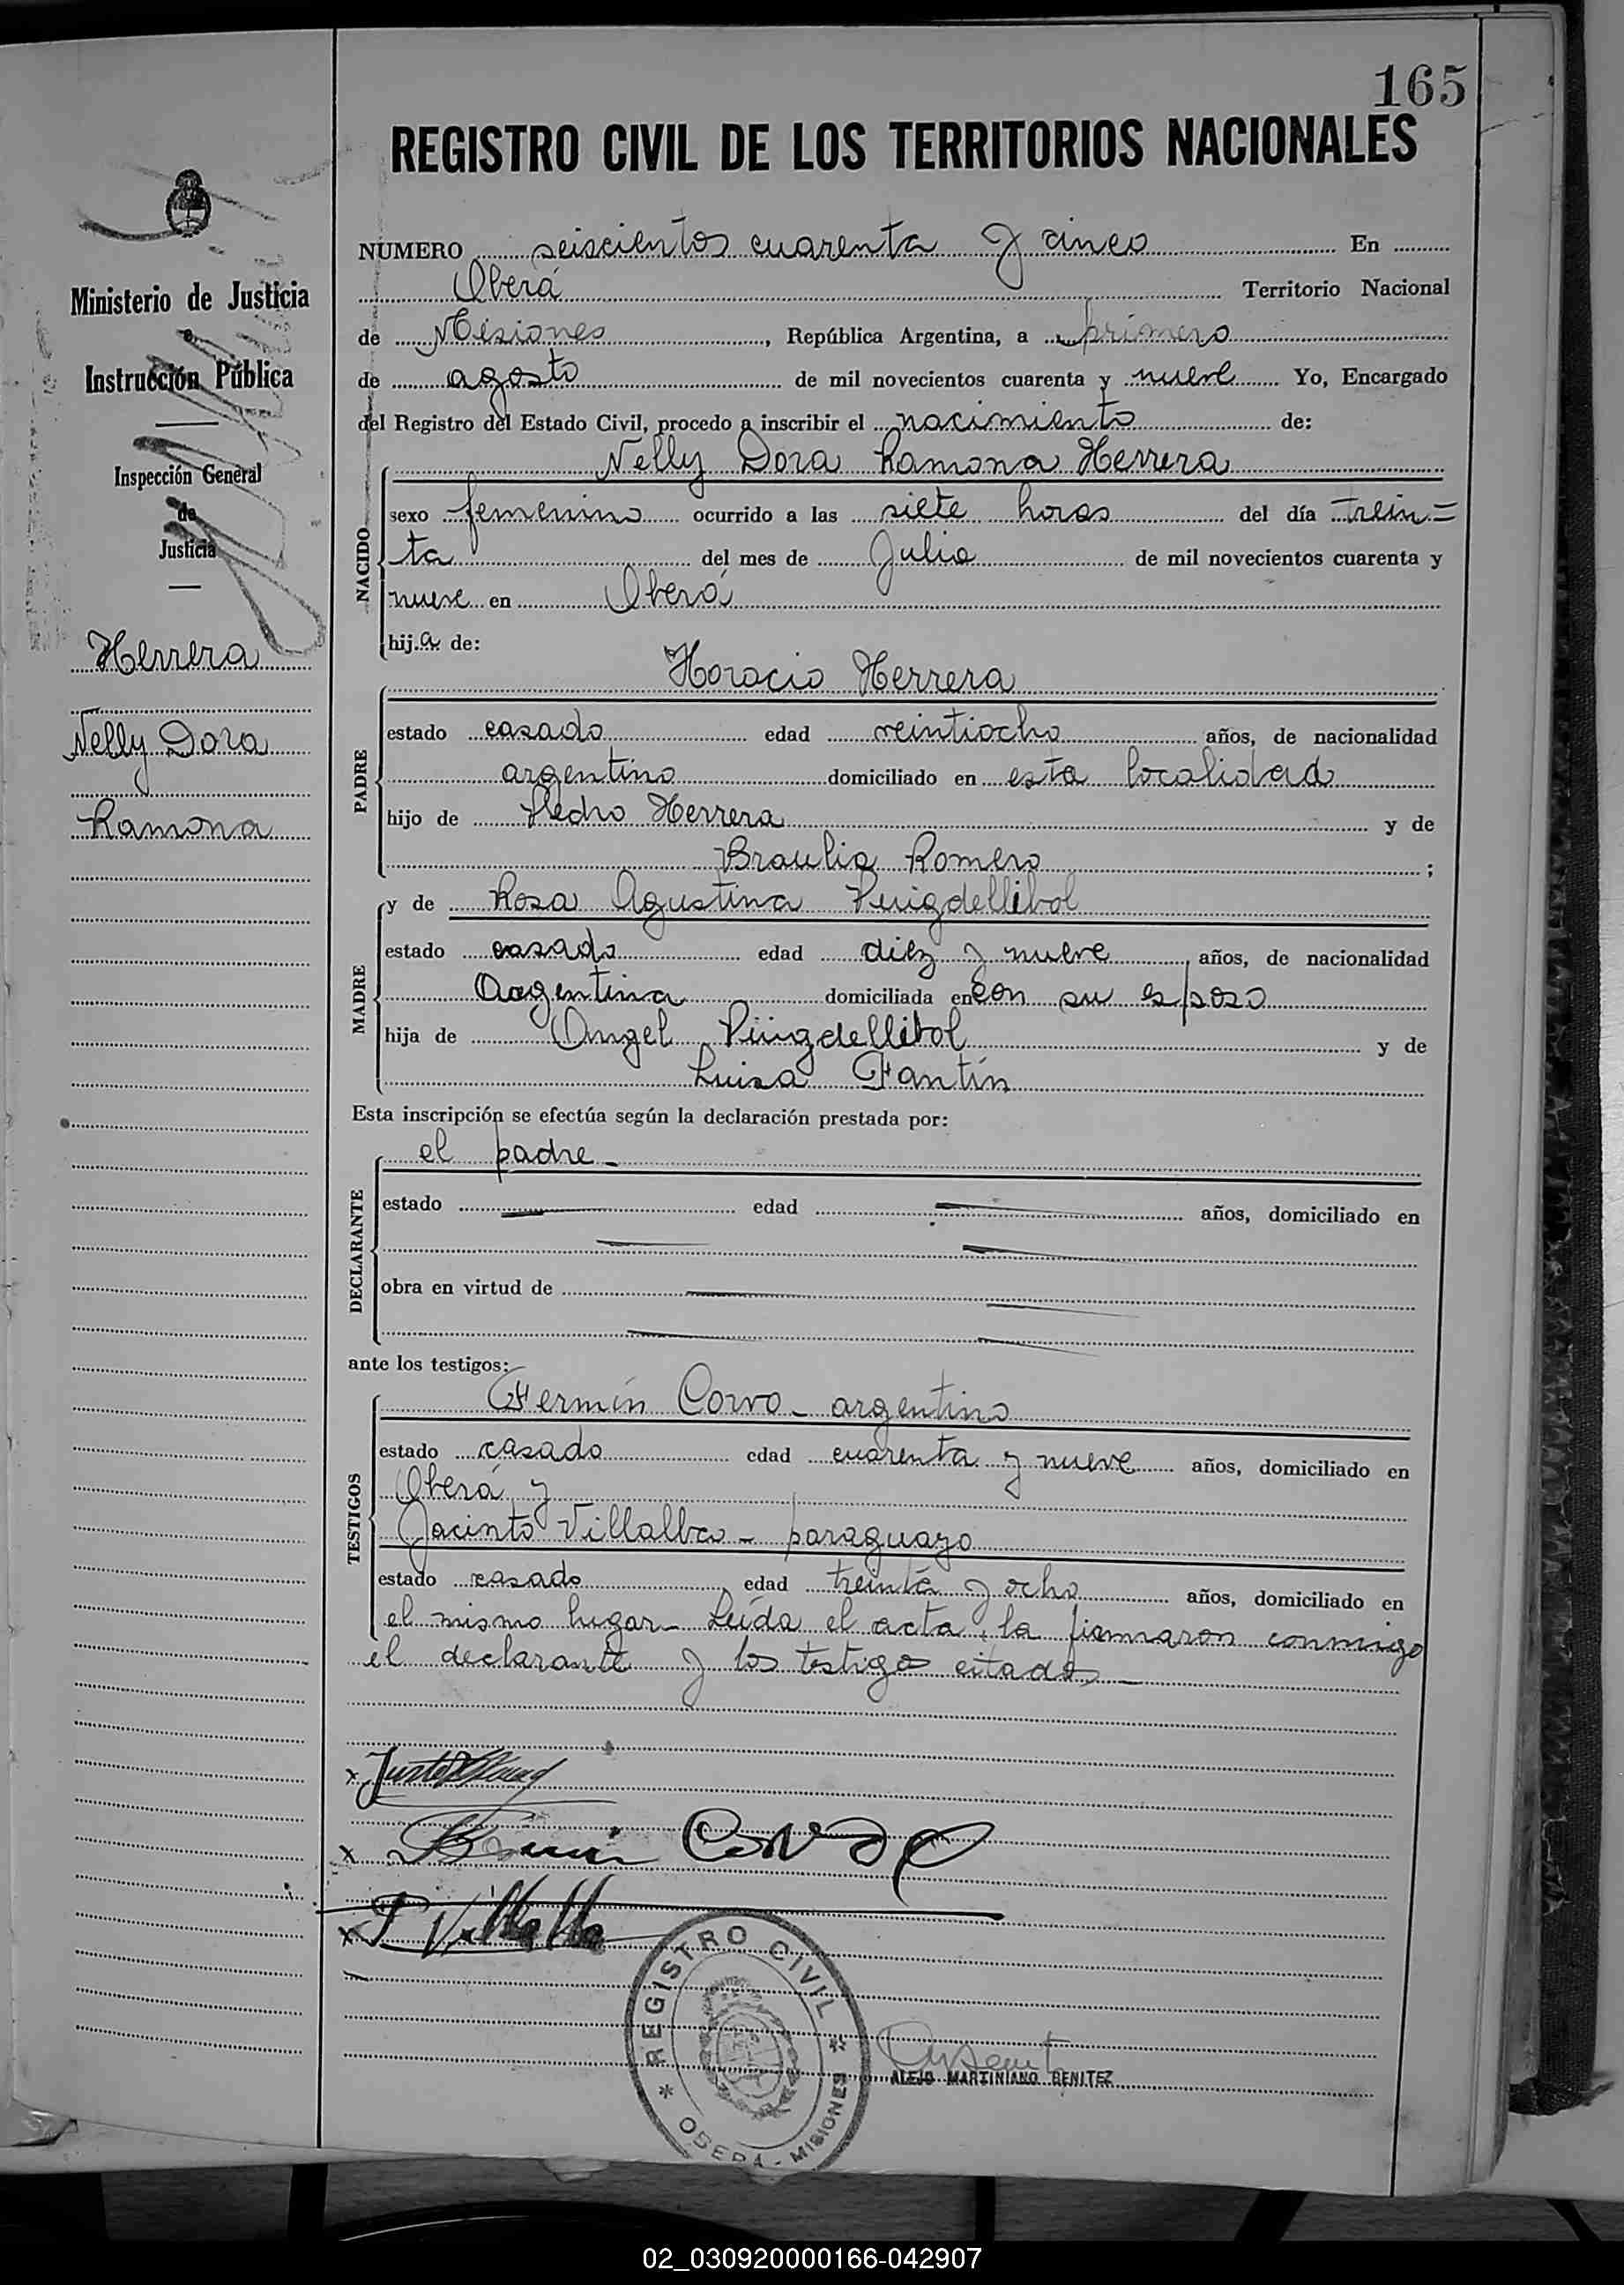 165
REGISTRO CIVIL DE LOS TERRITORIOS NACIONALES
Ministerio de Justicia
e
Instrucción Pública
Inspección General
de
Justicia
Herrera
Nelly Dora
Ramona
NUMERO seiscientos cuarenta y cinco En
Oberá Territorio Nacional
de Misiones, República Argentina, a primero
de agosto de mil novecientos cuarenta y nueve Yo, Encargado
del Registro del Estado Civil, procedo a inscribir el nacimiento de:
Nelly Dora Ramona Herrera
NACIDO
sexo femenino ocurrido a las siete horas del día trein=
ta del mes de Julio de mil novecientos cuarenta y
nueve en Oberá
hija de:
Horacio Herrera
PADRE
estado casado edad veintiocho años, de nacionalidad
argentino domiciliado en esta localidad
hijo de Pedro Herrera y de
Braulia Romero ;
y de Rosa Agustina Puigdellibol
MADRE
estado casada edad diez y nueve años, de nacionalidad
Argentina domiciliada en con su esposo
hija de Angel Puigdellibol y de
Luisa Fantín
Esta inscripción se efectúa según la declaración prestada por:
el padre
DECLARANTE
estado edad años, domiciliado en
obra en virtud de
ante los testigos:
Fermín Corvo - argentino
TESTIGOS
estado casado edad cuarenta y nueve años, domiciliado en
Oberá y
Jacinto Villalba - paraguayo
estado casado edad treinta y ocho años, domiciliado en
el mismo lugar - Leída el acta, la firmaron conmigo
el declarante y los testigos citados
x
x Corvo
x J Villalba
REGISTRO CIVIL
* OBERA - MISIONES *
ALEJO MARTINIANO BENITEZ
02_030920000166-042907